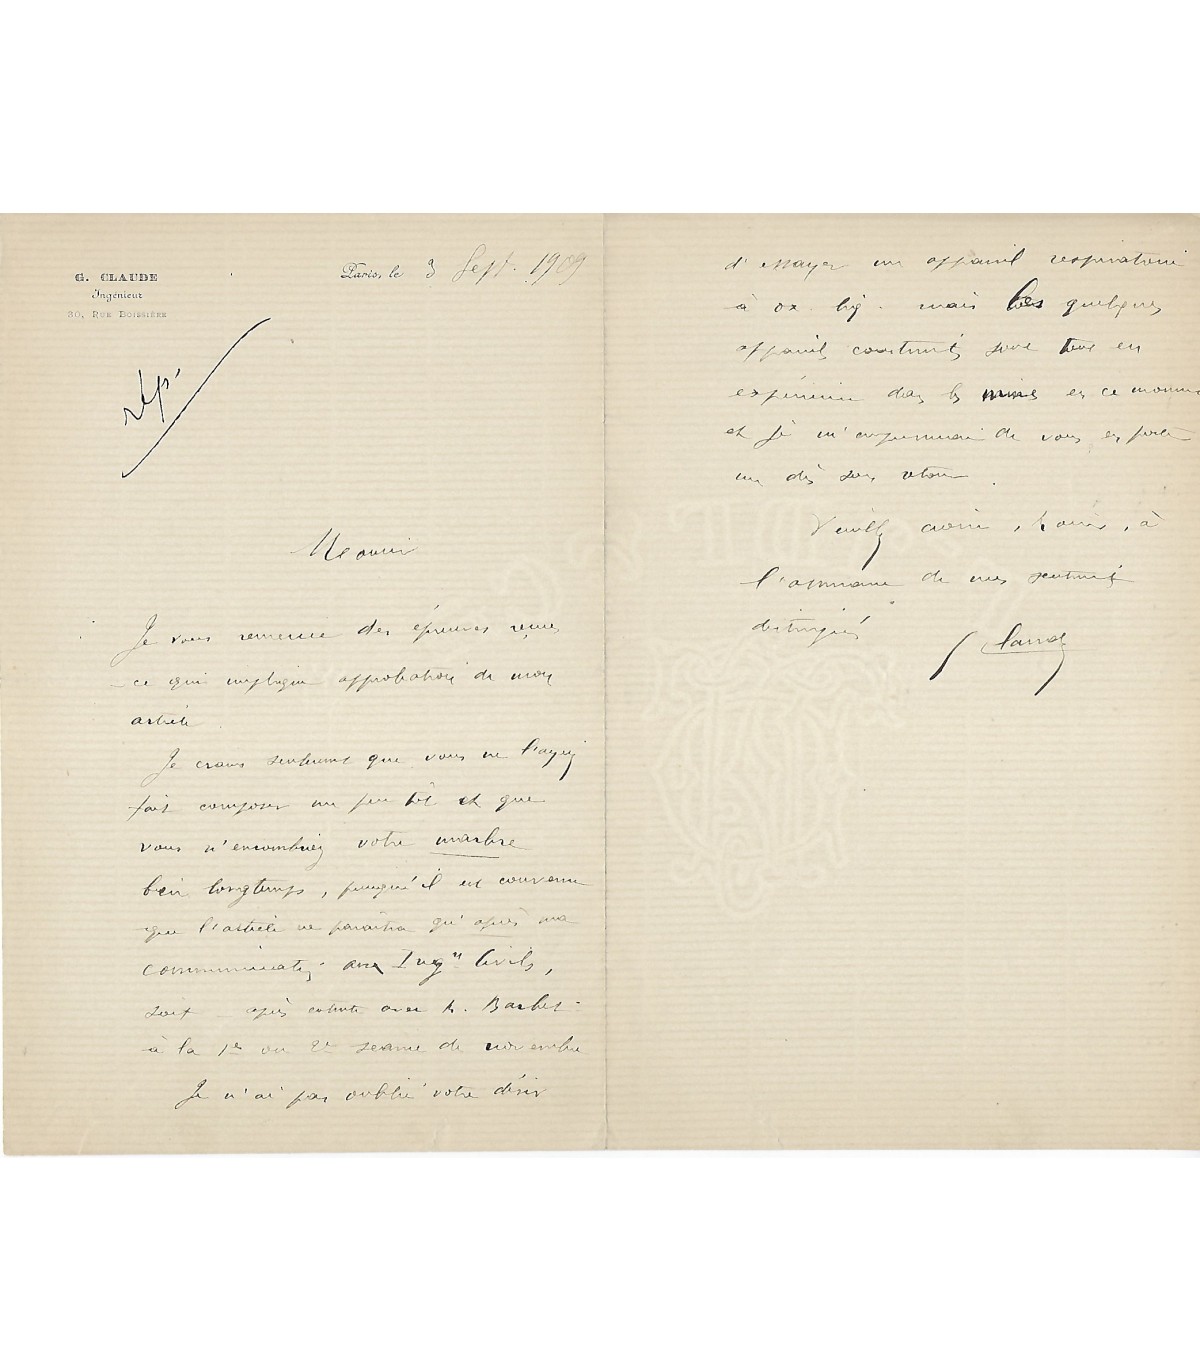 G. CLAUDE
Ingénieur
30, RUE BOISSIÈRE
Paris, le 3 Sept. 1909
rép.
Monsieur
Je vous remercie des épreuves reçues
- ce qui implique approbation de mon
article.
Je crains seulement que vous ne l'ayez
fait composer un peu tôt et que
vous n'encombriez votre marbre
bien longtemps, puisqu'il est convenu
que l'article ne paraîtra qu'après ma
communicatn aux Ingrs Civils,
soit - après entente avec M. Barbet -
à la 1re ou 2e séance de novembre
Je n'ai pas oublié votre désir
d'essayer un appareil respiratoire
à ox. liq. mais les quelques
appareils construits sont tous en
expérience dans les mines en ce moment
et je m'empresserai de vous en porter
un dès leur retour.
Veuillez croire, Monsieur, à
l'assurance de mes sentiments
distingués
G Claude